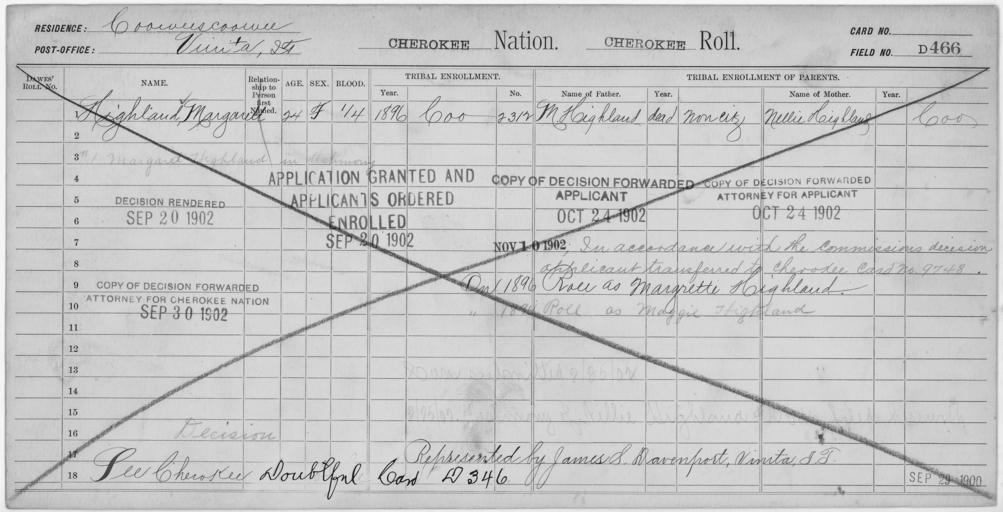 RESIDENCE: Cooweescoowee
POST-OFFICE: Vinita, I.T.
CHEROKEE Nation. CHEROKEE Roll.
CARD NO.
FIELD NO. D466
DAWES' ROLL NO. NAME. Relationship to Person first Named. AGE. SEX. BLOOD. TRIBAL ENROLLMENT. TRIBAL ENROLLMENT OF PARENTS.
Year. No. Name of Father. Year. Name of Mother. Year.
Highland, Margaret 24 F 1/4 1896 Coo 2312 M Highland dead Non citz Nellie Highland Coo
2
3 #1 Margaret Highland in testimony
4 APPLICATION GRANTED AND COPY OF DECISION FORWARDED COPY OF DECISION FORWARDED
APPLICANTS ORDERED APPLICANT ATTORNEY FOR APPLICANT
5 DECISION RENDERED
6 SEP 20 1902 ENROLLED OCT 24 1902 OCT 24 1902
SEP 20 1902
7 NOV 10 1902, In accordance with the Commissions decision
8 applicant transferred to Cherokee Card No. 9748.
9 COPY OF DECISION FORWARDED On 1896 Roll as Margrette Highland
ATTORNEY FOR CHEROKEE NATION
10 SEP 30 1902 " Roll as Maggie Highland
11
12
13
14
15
16 Decision
17 Represented by James S. Davenport, Vinita, I.T.
18 See Cherokee Doubtful Card D 346 SEP 29 1900